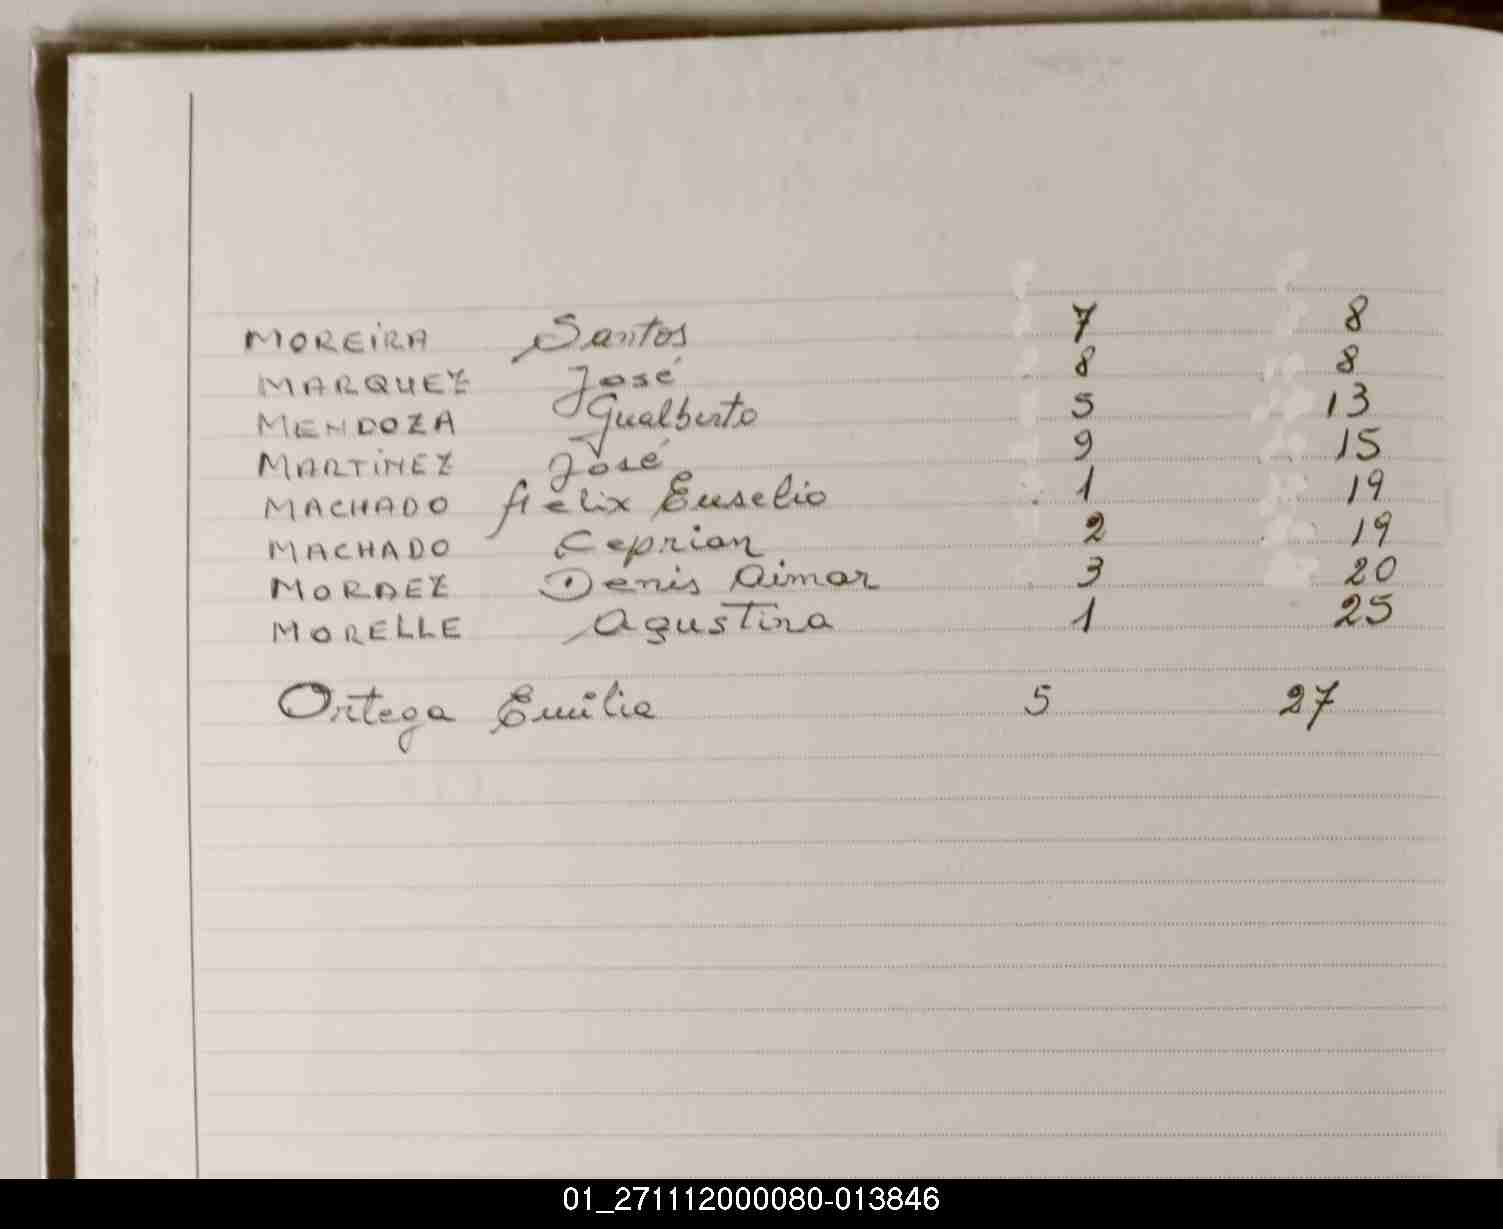 MOREIRA Santos 7 8
MARQUEZ José 8 8
MENDOZA Gualberto 5 13
MARTINEZ José 9 15
MACHADO Felix Euselio 1 19
MACHADO Ceprian 2 19
MORDEZ Denis Aimar 3 20
MORELLE Agustina 1 25
Ortega Emilia 5 27
01_271112000080-013846